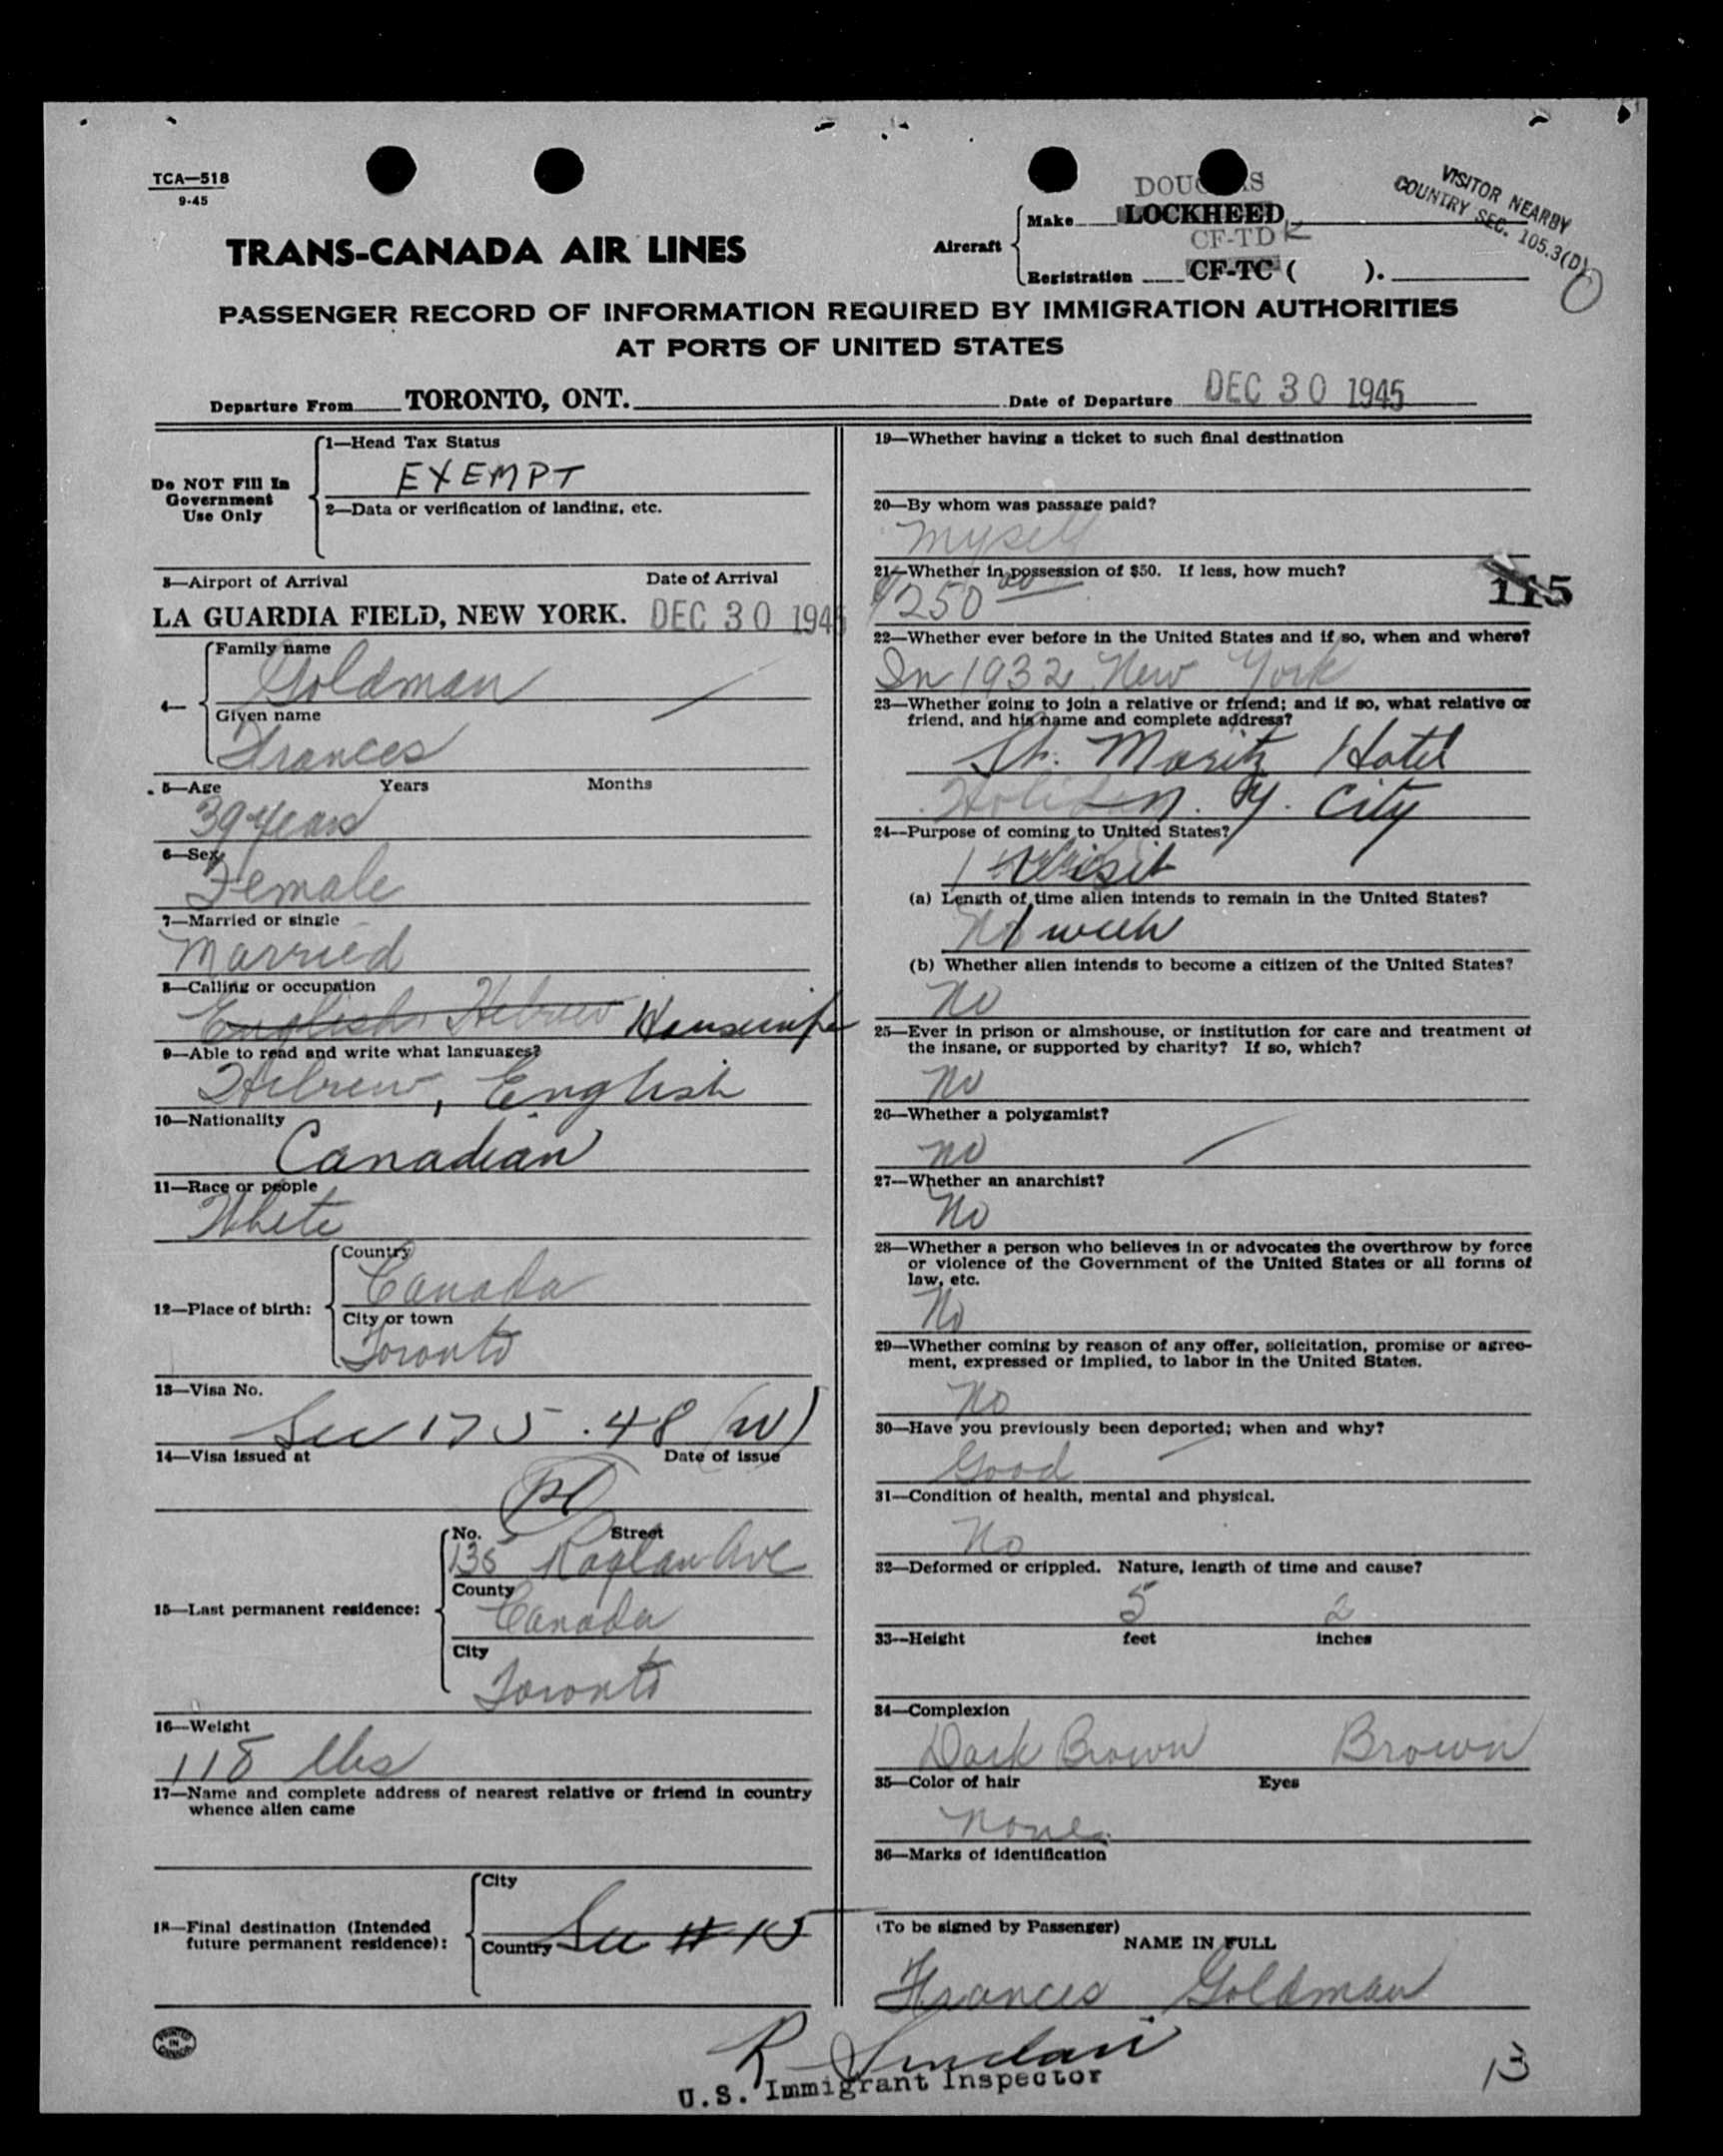 TCA—518
9-45
DOUGLAS
Make LOCKHEED
CF-TDK
Aircraft
Registration CF-TC ( ).
VISITOR NEARBY
COUNTRY SEC. 105.3(D)
TRANS-CANADA AIR LINES
PASSENGER RECORD OF INFORMATION REQUIRED BY IMMIGRATION AUTHORITIES
AT PORTS OF UNITED STATES
Departure From TORONTO, ONT. Date of Departure DEC 30 1945
Do NOT Fill In
Government
Use Only
1—Head Tax Status
EXEMPT
2—Data or verification of landing, etc.
3—Airport of Arrival Date of Arrival
LA GUARDIA FIELD, NEW YORK. DEC 30 1945
4—
Family name
Goldman
Given name
Frances
5—Age Years Months
39 years
6—Sex
Female
7—Married or single
Married
8—Calling or occupation
English Hebrew Housewife
9—Able to read and write what languages?
Hebrew, English
10—Nationality
Canadian
11—Race or people
White
12—Place of birth:
Country
Canada
City or town
Toronto
13—Visa No.
Sec 175.48 (W)
14—Visa issued at Date of issue
15—Last permanent residence:
No. Street
135 Raglan Ave
County
Canada
City
Toronto
16—Weight
118 lbs
17—Name and complete address of nearest relative or friend in country
whence alien came
18—Final destination (Intended
future permanent residence):
City
Country See # 15
19—Whether having a ticket to such final destination
20—By whom was passage paid?
Myself
21—Whether in possession of $50. If less, how much?
$250 00
115
22—Whether ever before in the United States and if so, when and where?
In 1932 New York
23—Whether going to join a relative or friend; and if so, what relative or
friend, and his name and complete address?
St. Moritz Hotel
N. Y. City
24—Purpose of coming to United States?
Visit
(a) Length of time alien intends to remain in the United States?
No 1 week
(b) Whether alien intends to become a citizen of the United States?
No
25—Ever in prison or almshouse, or institution for care and treatment of
the insane, or supported by charity? If so, which?
No
26—Whether a polygamist?
No
27—Whether an anarchist?
No
28—Whether a person who believes in or advocates the overthrow by force
or violence of the Government of the United States or all forms of
law, etc.
No
29—Whether coming by reason of any offer, solicitation, promise or agree-
ment, expressed or implied, to labor in the United States.
No
30—Have you previously been deported; when and why?
Good
31—Condition of health, mental and physical.
No
32—Deformed or crippled. Nature, length of time and cause?
5 2
33—Height feet inches
34—Complexion
Dark Brown Brown
35—Color of hair Eyes
None
36—Marks of identification
(To be signed by Passenger)
NAME IN FULL
Frances Goldman
PRINTED
IN
CANADA
R Sinclair
U.S. Immigrant Inspector
13